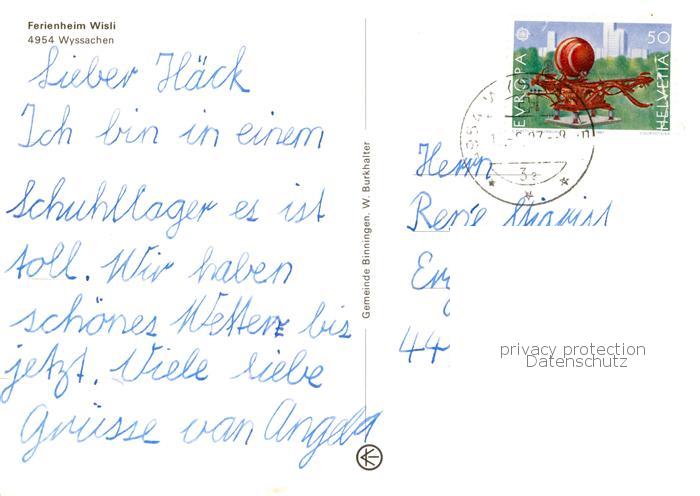 Ferienheim Wisli
4954 Wyssachen
Lieber Häck
Ich bin in einem
Schuhllager es ist
toll. Wir haben
schönes Wetter bis
jetzt. Viele liebe
Grüsse van Angela
Gemeinde Binningen. W. Burkhalter
EVROPA
50
HELVETIA
4954
3a
Herrn
René
44
privacy protection
Datenschutz